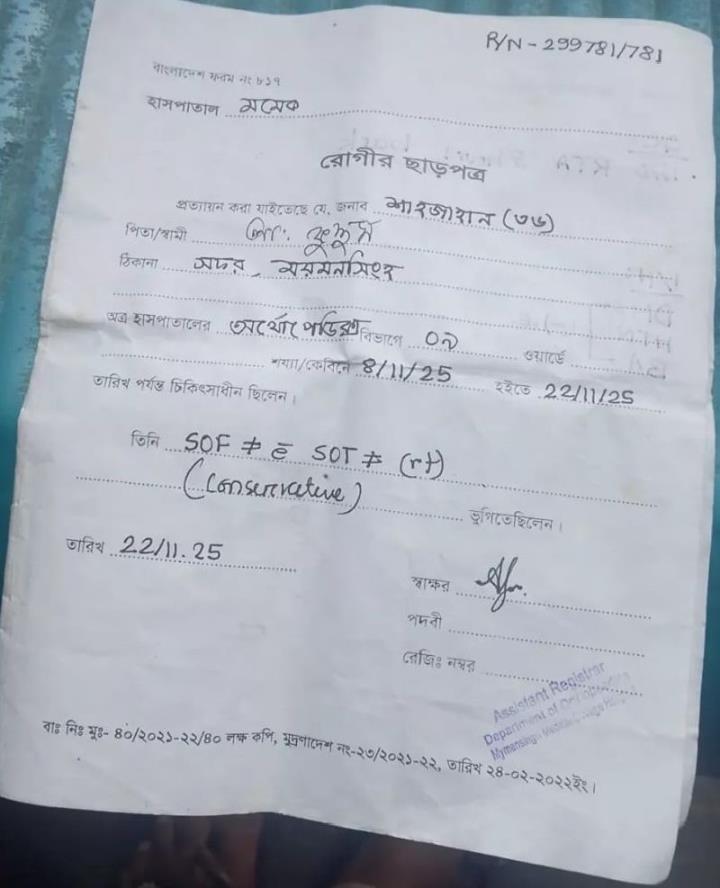 R/N - 299781/781
বাংলাদেশ ফরম নং ৮১৭
হাসপাতাল মমেক
রোগীর ছাড়পত্র
প্রত্যায়ন করা যাইতেছে যে, জনাব শাহজাহান (৩৬)
পিতা/স্বামী
ঠিকানা সদর, ময়মনসিংহ
অত্র হাসপাতালের অর্থোপেডিক্স বিভাগে ০৯ ওয়ার্ডে
শয্যা/কেবিনে 8/11/25 হইতে 22/11/25
তারিখ পর্যন্ত চিকিৎসাধীন ছিলেন।
তিনি SOF ≠ c̄ SOT ≠ (rt)
(Conservative) ভুগিতেছিলেন।
তারিখ 22/11.25
স্বাক্ষর
পদবী
রেজিঃ নম্বর
Assistant Registrar
Department of Orthopaedics
Mymensingh Medical College
বাঃ নিঃ মুঃ- ৪০/২০২১-২২/৪০ লক্ষ কপি, মুদ্রণাদেশ নং-২৩/২০২১-২২, তারিখ ২৪-০২-২০২২ইং।